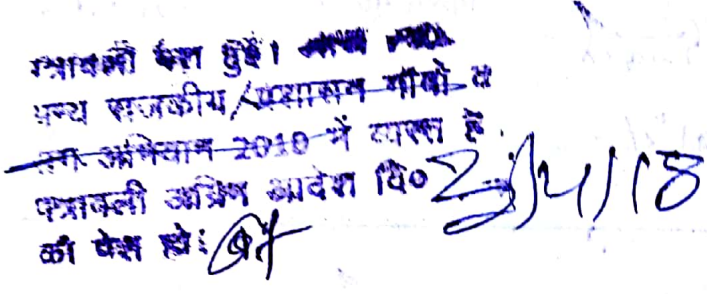 पत्रावली पेश हुई।
अन्य राजकीय/प्रशासन गाँवो के
संग अभियान 2010 में व्यस्त है.
पत्रावली अग्रिम आदेश दि० 23/4/18
को पेश हो: